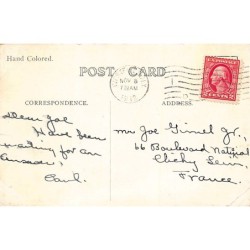 Hand Colored.
POST CARD
NOV 8
CORRESPONDENCE.
ADDRESS.
Dear Joe
Have been
waiting for an
answer.
Carl.
Mr Joe Gimel Jr.,
66 Boulevard National
Clichy Seine,
France.